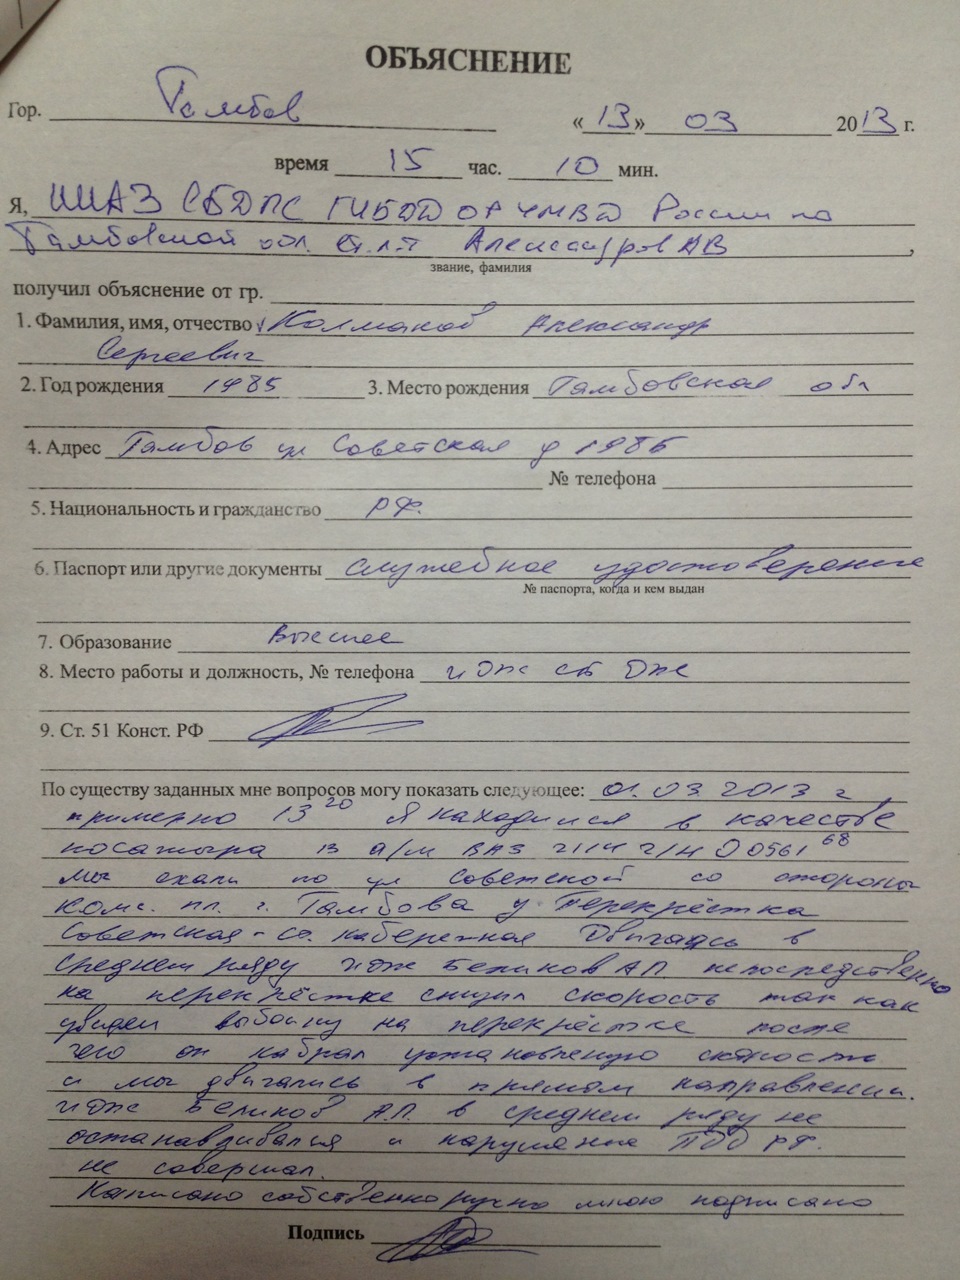 ОБЪЯСНЕНИЕ
Гор. Тамбов «13» 03 2013 г.
время 15 час. 10 мин.
Я, ИИАЗ СБДПС ГИБДД ОР УМВД России по
Тамбовской обл. ст. л-т Александров АВ,
звание, фамилия
получил объяснение от гр.
1. Фамилия, имя, отчество Колмаков Александр
Сергеевич
2. Год рождения 1985 3. Место рождения Тамбовская обл
4. Адрес Тамбов ул Советская д
№ телефона
5. Национальность и гражданство РФ.
6. Паспорт или другие документы служебное удостоверение
№ паспорта, когда и кем выдан
7. Образование Высшее
8. Место работы и должность, № телефона ИДПС СБ ДПС
9. Ст. 51 Конст. РФ
По существу заданных мне вопросов могу показать следующее: 01.03.2013 г
примерно 13 20 Я находился в качестве
посажыра в а/м ВАЗ 2114 г/н О0561 68
мы ехали по ул Советской со стороны
Комс. пл. г. Тамбова у перекрёстка
Советская - Набережная Двигаясь в
среднем ряду ИДПС Беликов АП непосредственно
на перекрёстке снизил скорость так как
увидел выбоину на перекрёстке после
чего он набрал установленую скорость
и мы двигались в прямом направлении.
ИДПС Беликов А.П. в среднем ряду не
останавливался и нарушение ПДД РФ.
не совершал.
Написано собственноручно мною подписано
Подпись